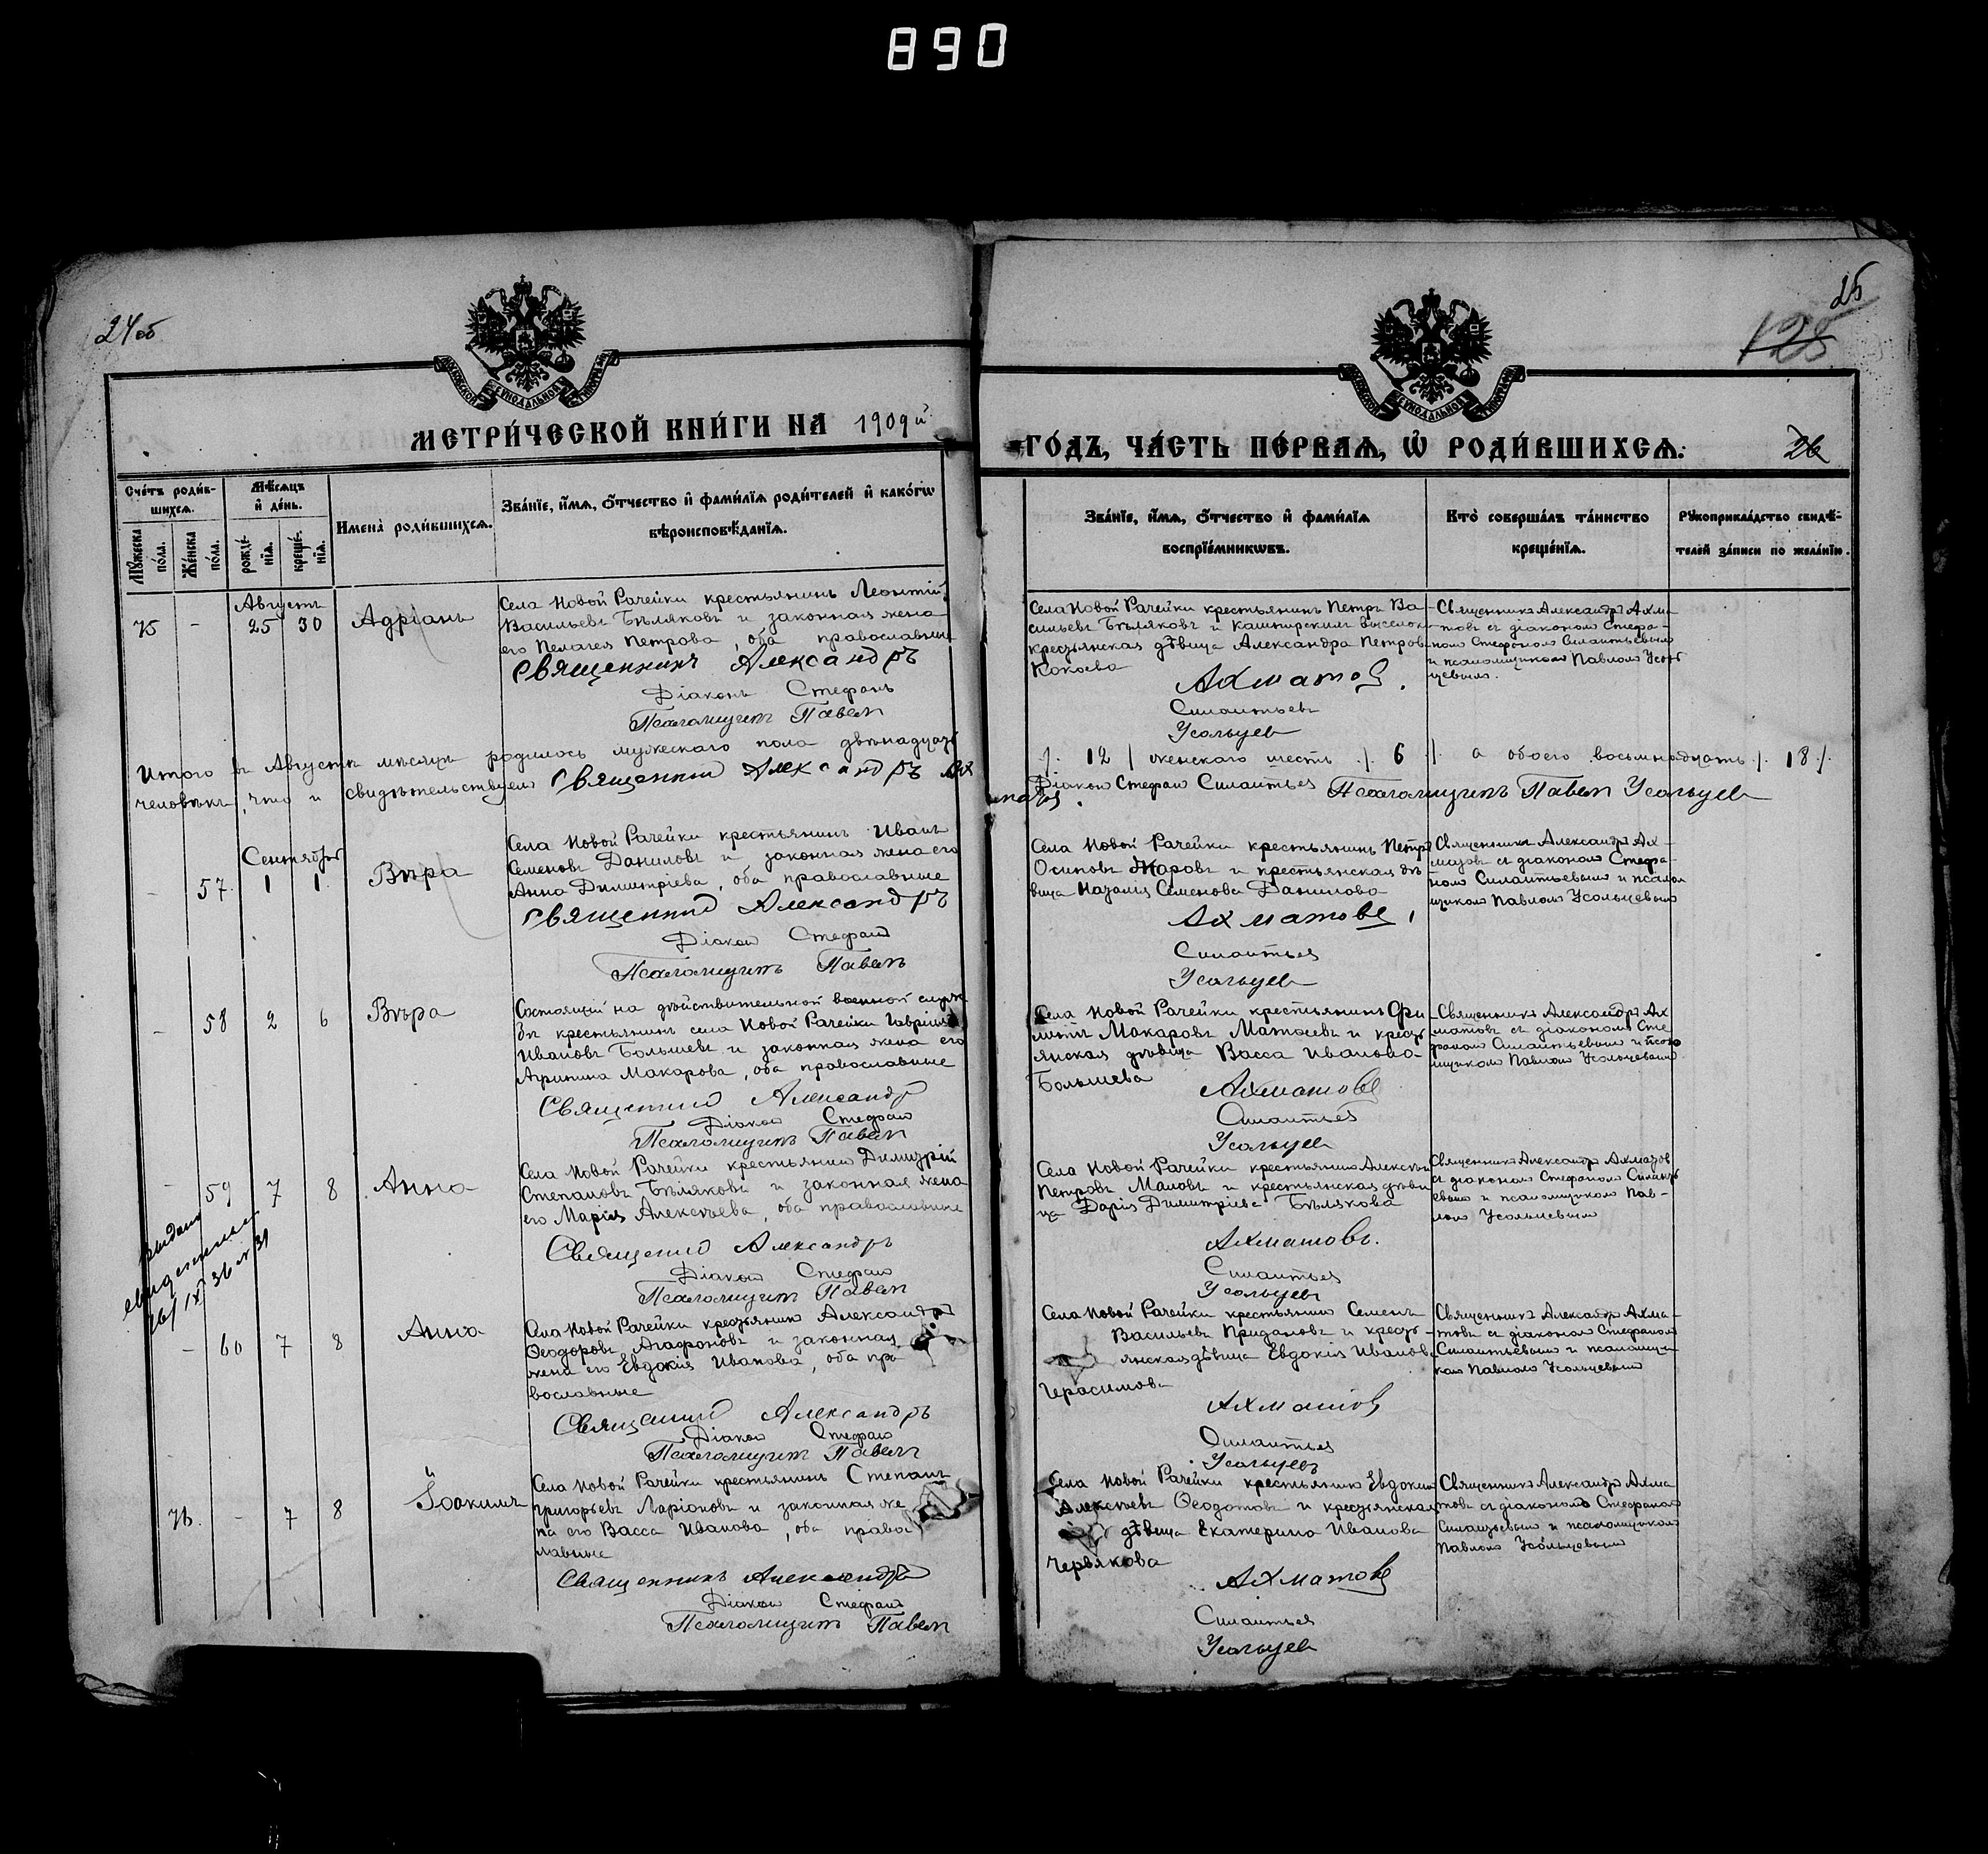 890
24 об
25
125
26
МЕТРИ́ЧЕСКОЙ КНИ́ГИ НА 1909й
ГО́ДЪ, ЧА́СТЬ ПЕ́РВАѦ, Ѡ҆ РОДИ́ВШИХСѦ.
Сче́тъ роди́в-
шихсѧ.
Мꙋ́жеска по́ла.
Же́нска по́ла.
Мѣ́сѧцъ
и҆ де́нь.
рожде́-
нїѧ.
креще́-
нїѧ.
И҆мена̀ роди́вшихсѧ.
Зва́нїе, и҆́мѧ, ѻ҆́тчество и҆ фами́лїѧ роди́телей и҆ како́гѡ
вѣроисповѣ́данїѧ.
Зва́нїе, и҆́мѧ, ѻ҆́тчество и҆ фами́лїѧ
воспрїе́мникѡвъ.
Кто̀ соверша́лъ та́инство
креще́нїѧ.
Рꙋкоприкла́дство свидѣ́-
телей за́писи по жела́нїю.
Августъ
75 - 25 30 Адріанъ
Села Новой Рачейки крестьянинъ Леонтій
Васильевъ Бѣляковъ и законная жена
его Пелагея Петрова, оба православные
Священникъ Александръ
Діаконъ Стефанъ
Псаломщикъ Павелъ
Села Новой Рачейки крестьянинъ Петръ Ва-
сильевъ Бѣляковъ и Каширскихъ выселок
крестьянская дѣвица Александра Петров
Кокоева
Ахматов.
Силантьевъ
Усольцев
Священникъ Александръ Ахма-
товъ съ діакономъ Стефа-
номъ Силантьевымъ
и псаломщикомъ Павломъ Усоль
цевымъ.
Итого въ Августѣ мѣсяцѣ родилось мужескаго пола двѣнадцать
/. 12 / женскаго шесть ./. 6 ./. а обоего восьмнадцать ./. 18 ./.
человѣкъ, что и свидѣтельствуемъ Священник Александръ Ах
матов.
Діакон Стефан Силантьев Псаломщикъ Павел Усольцев
Сентябрь
- 57. 1 1. Вѣра
Села Новой Рачейки крестьянинъ Иванъ
Семеновъ Даниловъ и законная жена его
Анна Димитріева, оба православные
Священник Александръ
Діакон Стефан
Псаломщикъ Павелъ
Села Новой Рачейки крестьянинъ Петръ
Осиповъ Жаровъ и крестьянская дѣ
вица Наталія Семенова Данилова
Ахматовъ
Силантьев
Усольцев
Священникъ Александръ Ах-
матовъ съ діакономъ Стефа-
номъ Силантьевымъ и псалом
щикомъ Павломъ Усольцевымъ
- 58 2 6 Вѣра
Состоящій на дѣйствительной военной служ
бѣ крестьянинъ села Новой Рачейки Гавріилъ
Ивановъ Болышевъ и законная жена его
Агрипина Макарова, оба православные
Священник Александръ
Діакон Стефан
Псаломщикъ Павел
Села Новой Рачейки крестьянинъ Фи
липпъ Макаровъ Матвеевъ и кресть
янская дѣвица Васса Иванова
Болышева
Ахматовъ
Силантьев
Усольцев
Священникъ Александръ Ах
матовъ съ діакономъ Сте
фаномъ Силантьевымъ и псало
мщикомъ Павломъ Усольцевымъ
- 59 7 8 Анна
Села Новой Рачейки крестьянин Димитрій
Степановъ Бѣляковъ и законная жена
его Марія Алексѣева, оба православные
Священник Александръ
Діакон Стефан
Псаломщикъ Павел
Села Новой Рачейки крестьянинъ Алексѣй
Петровъ Маловъ и крестьянская дѣви
ца Дарія Димитріева Бѣлякова
Ахматовъ.
Силантьев
Усольцев
Священникъ Александръ Ахматов
съ діакономъ Стефаномъ Силант
евымъ и псаломщикомъ Пав-
ломъ Усольцевымъ
выдано
свидетельс
26/IX 36 № 31
- 60 7 8 Анна
Села Новой Рачейки крестьянинъ Александръ
Ѳеодоровъ Агафоновъ и законная
жена его Евдокія Иванова, оба пра
вославные
Священник Александръ
Діакон Стефан
Псаломщикъ Павелъ
Села Новой Рачейки крестьянинъ Семенъ
Васильевъ Придановъ и кресть-
янская дѣвица Евдокія Иванова
Герасимова
Ахматов
Силантьев
Усольцевъ
Священникъ Александръ Ахма-
товъ съ діакономъ Стефаномъ
Силантьевымъ и псаломщи
комъ Павломъ Усольцевымъ
76. - 7 8 Іоакимъ
Села Новой Рачейки крестьянинъ Степанъ
Григорьевъ Ларіоновъ и законная же
на его Васса Иванова, оба право
славные
Священникъ Александръ
Діакон Стефан
Псаломщикъ Павел
Села Новой Рачейки крестьянинъ Евдокимъ
Алексѣевъ Ѳеодотовъ и крестьянская
дѣвица Екатерина Иванова
Червякова
Ахматовъ
Силантьев
Усольцев
Священникъ Александръ Ахма
товъ съ діакономъ Стефаномъ
Силантьевымъ и псаломщикомъ
Павломъ Усольцевымъ